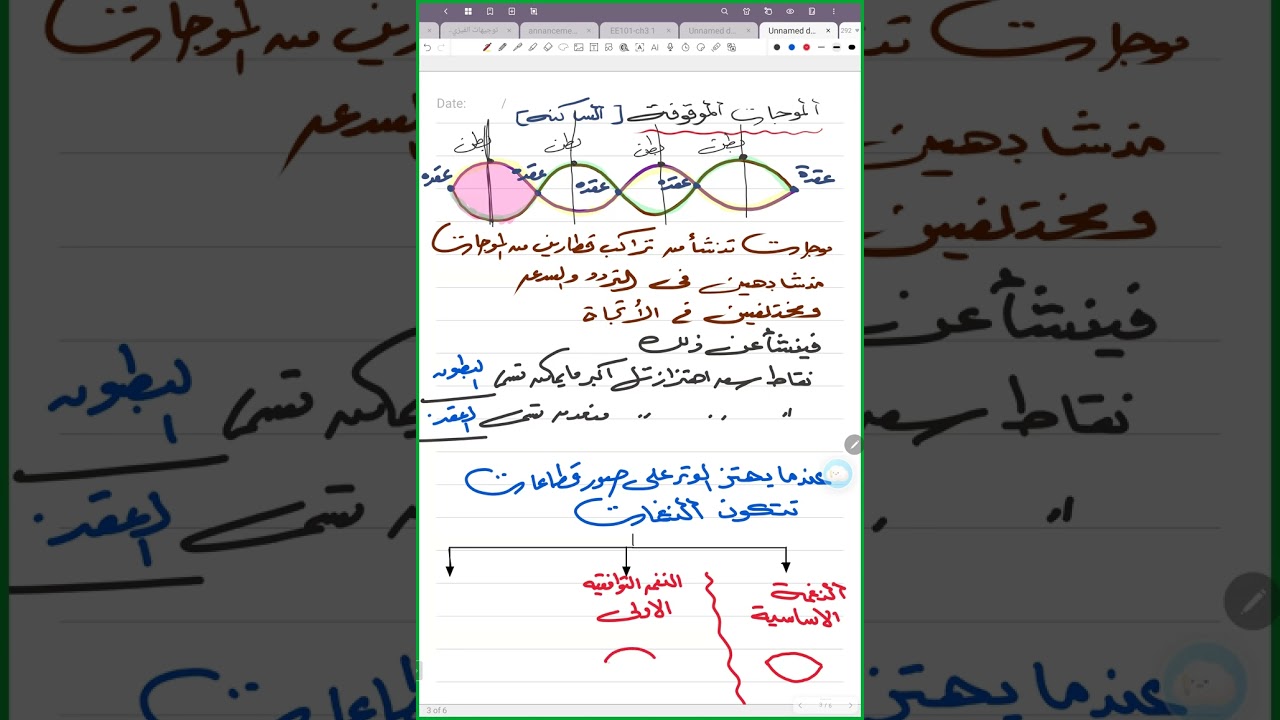 توجيهات الفيزي...
annanceme...
EE101-ch3 1
Unnamed d...
Unnamed d...
292
Date: /
الموجات الموقوفة [الساكنه]
بطن بطن بطن بطن
عقدة عقده عقده عقده عقده
موجات تنشأ من تراكب قطارين من الموجات
متشابهين في التردد والسعه
ومختلفين في الأتجاة
فينشأ عن ذلك
نقاط سعه اهتزاز أكبر مايمكن تسمى البطون
" " " منعدمه تسمى العقد
عندما يهتز الوتر على صور قطاعات
تتكون النغمات
النغمة الاساسية
النغمه التوافقيه الاولى
3 of 6
3 / 6